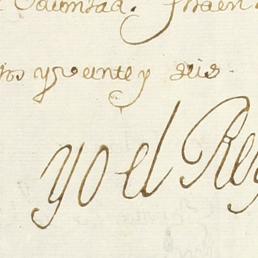 Voluntad.
tos y veinte y seis.
yo el Rey